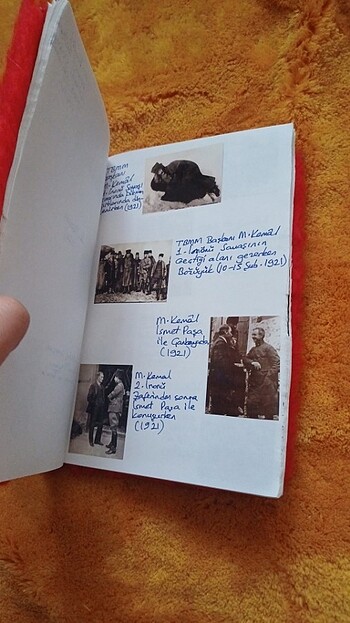 TBMM
M. Kemâl
(1921)
TBMM Başkanı M. Kemâl
1. İnönü Savaşının
geçtiği alanı gezerken
Bözüyük (10-15 Şub. 1921)
M. Kemâl
İsmet Paşa
ile Çankaya'da
(1921)
M. Kemal
2. İnönü
Zaferinden sonra
İsmet Paşa ile
konuşurken
(1921)